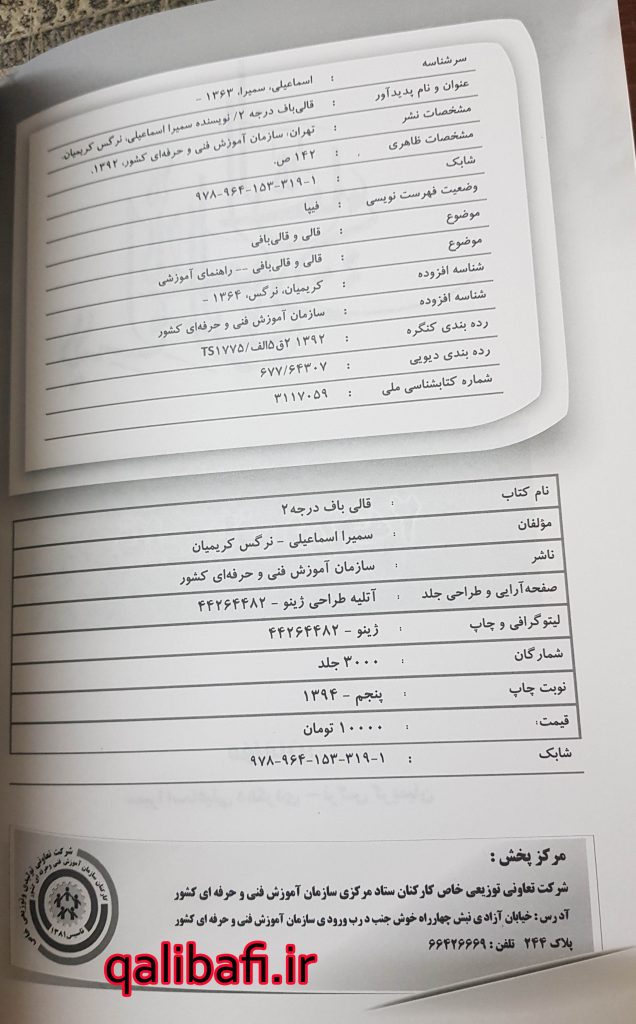 سرشناسه : اسماعیلی، سمیرا، ۱۳۶۳ -
عنوان و نام پدیدآور : قالی‌باف درجه ۲/ نویسنده سمیرا اسماعیلی، نرگس کریمیان.
مشخصات نشر : تهران، سازمان آموزش فنی و حرفه‌ای کشور، ۱۳۹۲.
مشخصات ظاهری : ۱۴۲ ص.
شابک : ۹۷۸-۹۶۴-۱۵۳-۳۱۹-۱
وضعیت فهرست نویسی : فیپا
موضوع : قالی و قالی‌بافی
موضوع : قالی و قالی‌بافی -- راهنمای آموزشی
شناسه افزوده : کریمیان، نرگس، ۱۳۶۴ -
شناسه افزوده : سازمان آموزش فنی و حرفه‌ای کشور
رده بندی کنگره : ۱۳۹۲ ۲ق۵الف/TS۱۷۷۵
رده بندی دیویی : ۶۷۷/۶۴۳۰۷
شماره کتابشناسی ملی : ۳۱۱۷۰۵۹
نام کتاب : قالی باف درجه۲
مؤلفان : سمیرا اسماعیلی - نرگس کریمیان
ناشر : سازمان آموزش فنی و حرفه‌ای کشور
صفحه‌آرایی و طراحی جلد : آتلیه طراحی ژینو - ۴۴۲۶۴۴۸۲
لیتوگرافی و چاپ : ژینو - ۴۴۲۶۴۴۸۲
شمارگان : ۳۰۰۰ جلد
نوبت چاپ : پنجم - ۱۳۹۴
قیمت: : ۱۰۰۰۰ تومان
شابک : ۹۷۸-۹۶۴-۱۵۳-۳۱۹-۱
مرکز پخش :
شرکت تعاونی توزیعی خاص کارکنان ستاد مرکزی سازمان آموزش فنی و حرفه ای کشور
آدرس : خیابان آزادی نبش چهارراه خوش جنب درب ورودی سازمان آموزش فنی و حرفه ای کشور
پلاک ۲۴۴ تلفن : ۶۶۴۲۶۶۶۹
شرکت تعاونی تولیدی وتوزیعی خاص
کارکنان سازمان آموزش فنی وحرفه ای کشور
تاسیس ۱۳۸۱
qalibafi.ir